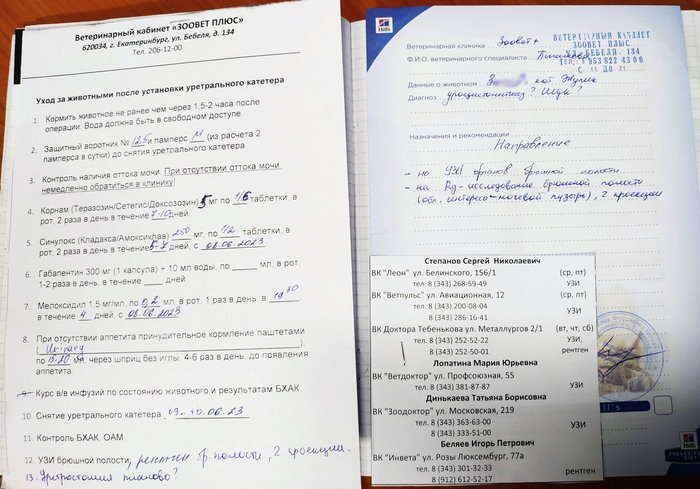 Ветеринарный кабинет «ЗООВЕТ ПЛЮС»
620034, г. Екатеринбург, ул. Бебеля, д. 134
Тел. 206-12-00
Уход за животными после установки уретрального катетера
1. Кормить животное не ранее чем через 1,5-2 часа после
операции. Вода должна быть в свободном доступе
2. Защитный воротник № 12.5 и памперс M (из расчета 2
памперса в сутки) до снятия уретрального катетера.
3. Контроль наличия оттока мочи. При отсутствии оттока мочи
немедленно обратиться в клинику!
4. Корнам (Теразозин/Сетегис/Доксозозин) 5 мг по 1/6 таблетки, в
рот, 2 раза в день в течение 7-10 дней.
5. Синулокс (Кладакса/Амоксиклав) 250 мг, по 1/2 таблетки, в
рот, 2 раза в день в течение 5-7 дней, с 08.06.2023
6. Габапентин 300 мг (1 капсула) + 10 мл воды, по ____ мл, в рот,
1-2 раза в день, в течение ____ дней.
7. Мелоксидил 1,5 мг/мл, по 0,2 мл, в рот, 1 раз в день, в 19 30
в течение 4 дней, с 08.06.2023
8. При отсутствии аппетита принудительное кормление паштетами
( Urinary )
по 15-20 мл, через шприц без иглы, 4-6 раз в день, до появления
аппетита
9. Курс в/в инфузий по состоянию животного и результатам БХАК.
10. Снятие уретрального катетера 09-10.06.23
11. Контроль БХАК, ОАМ
12. УЗИ брюшной полости, рентген бр. полости, 2 проекции.
13. Уретростомия планово?
Hill's
Ветеринарная клиника Зоовет+
ВЕТЕРИНАРНЫЙ КАБИНЕТ
ЗООВЕТ ПЛЮС
УЛ. БЕБЕЛЯ, 134
ТЕЛ.: 8 953 822 43 06
С 11 ДО 21
Ф.И.О. ветеринарного специалиста
Данные о животном кот Жулик
Диагноз уроцистолитиаз? ИЦК?
Назначения и рекомендации
Направление
- на УЗИ органов брюшной полости
- на Rg-исследование брюшной полости
(обл. интереса - мочевой пузырь), 2 проекции
Степанов Сергей Николаевич
ВК "Леон" ул. Белинского, 156/1 (ср, пт)
тел. 8 (343) 268-59-49 УЗИ
ВК "Ветпульс" ул. Авиационная, 12 (ср, пт)
тел. 8 (343) 200-08-04
8 (343) 286-16-41 УЗИ
ВК Доктора Тебенькова ул. Металлургов 2/1 (вт, чт, сб)
тел. 8 (343) 252-52-22 УЗИ
8 (343) 252-50-01 рентген
Лопатина Мария Юрьевна
ВК "Ветдоктор" ул. Профсоюзная, 55
тел. 8 (343) 381-87-87 УЗИ
Динькаева Татьяна Борисовна
ВК "Зоодоктор" ул. Московская, 219
тел. 8 (343) 363-63-00 УЗИ
8 (343) 333-51-00
Беляев Игорь Петрович
ВК "Инвета" ул. Розы Люксембург, 77а
тел. 8 (343) 301-32-33 рентген
8 (912) 612-52-17
ll's
Hill's
PRESCRIPTION
DIET